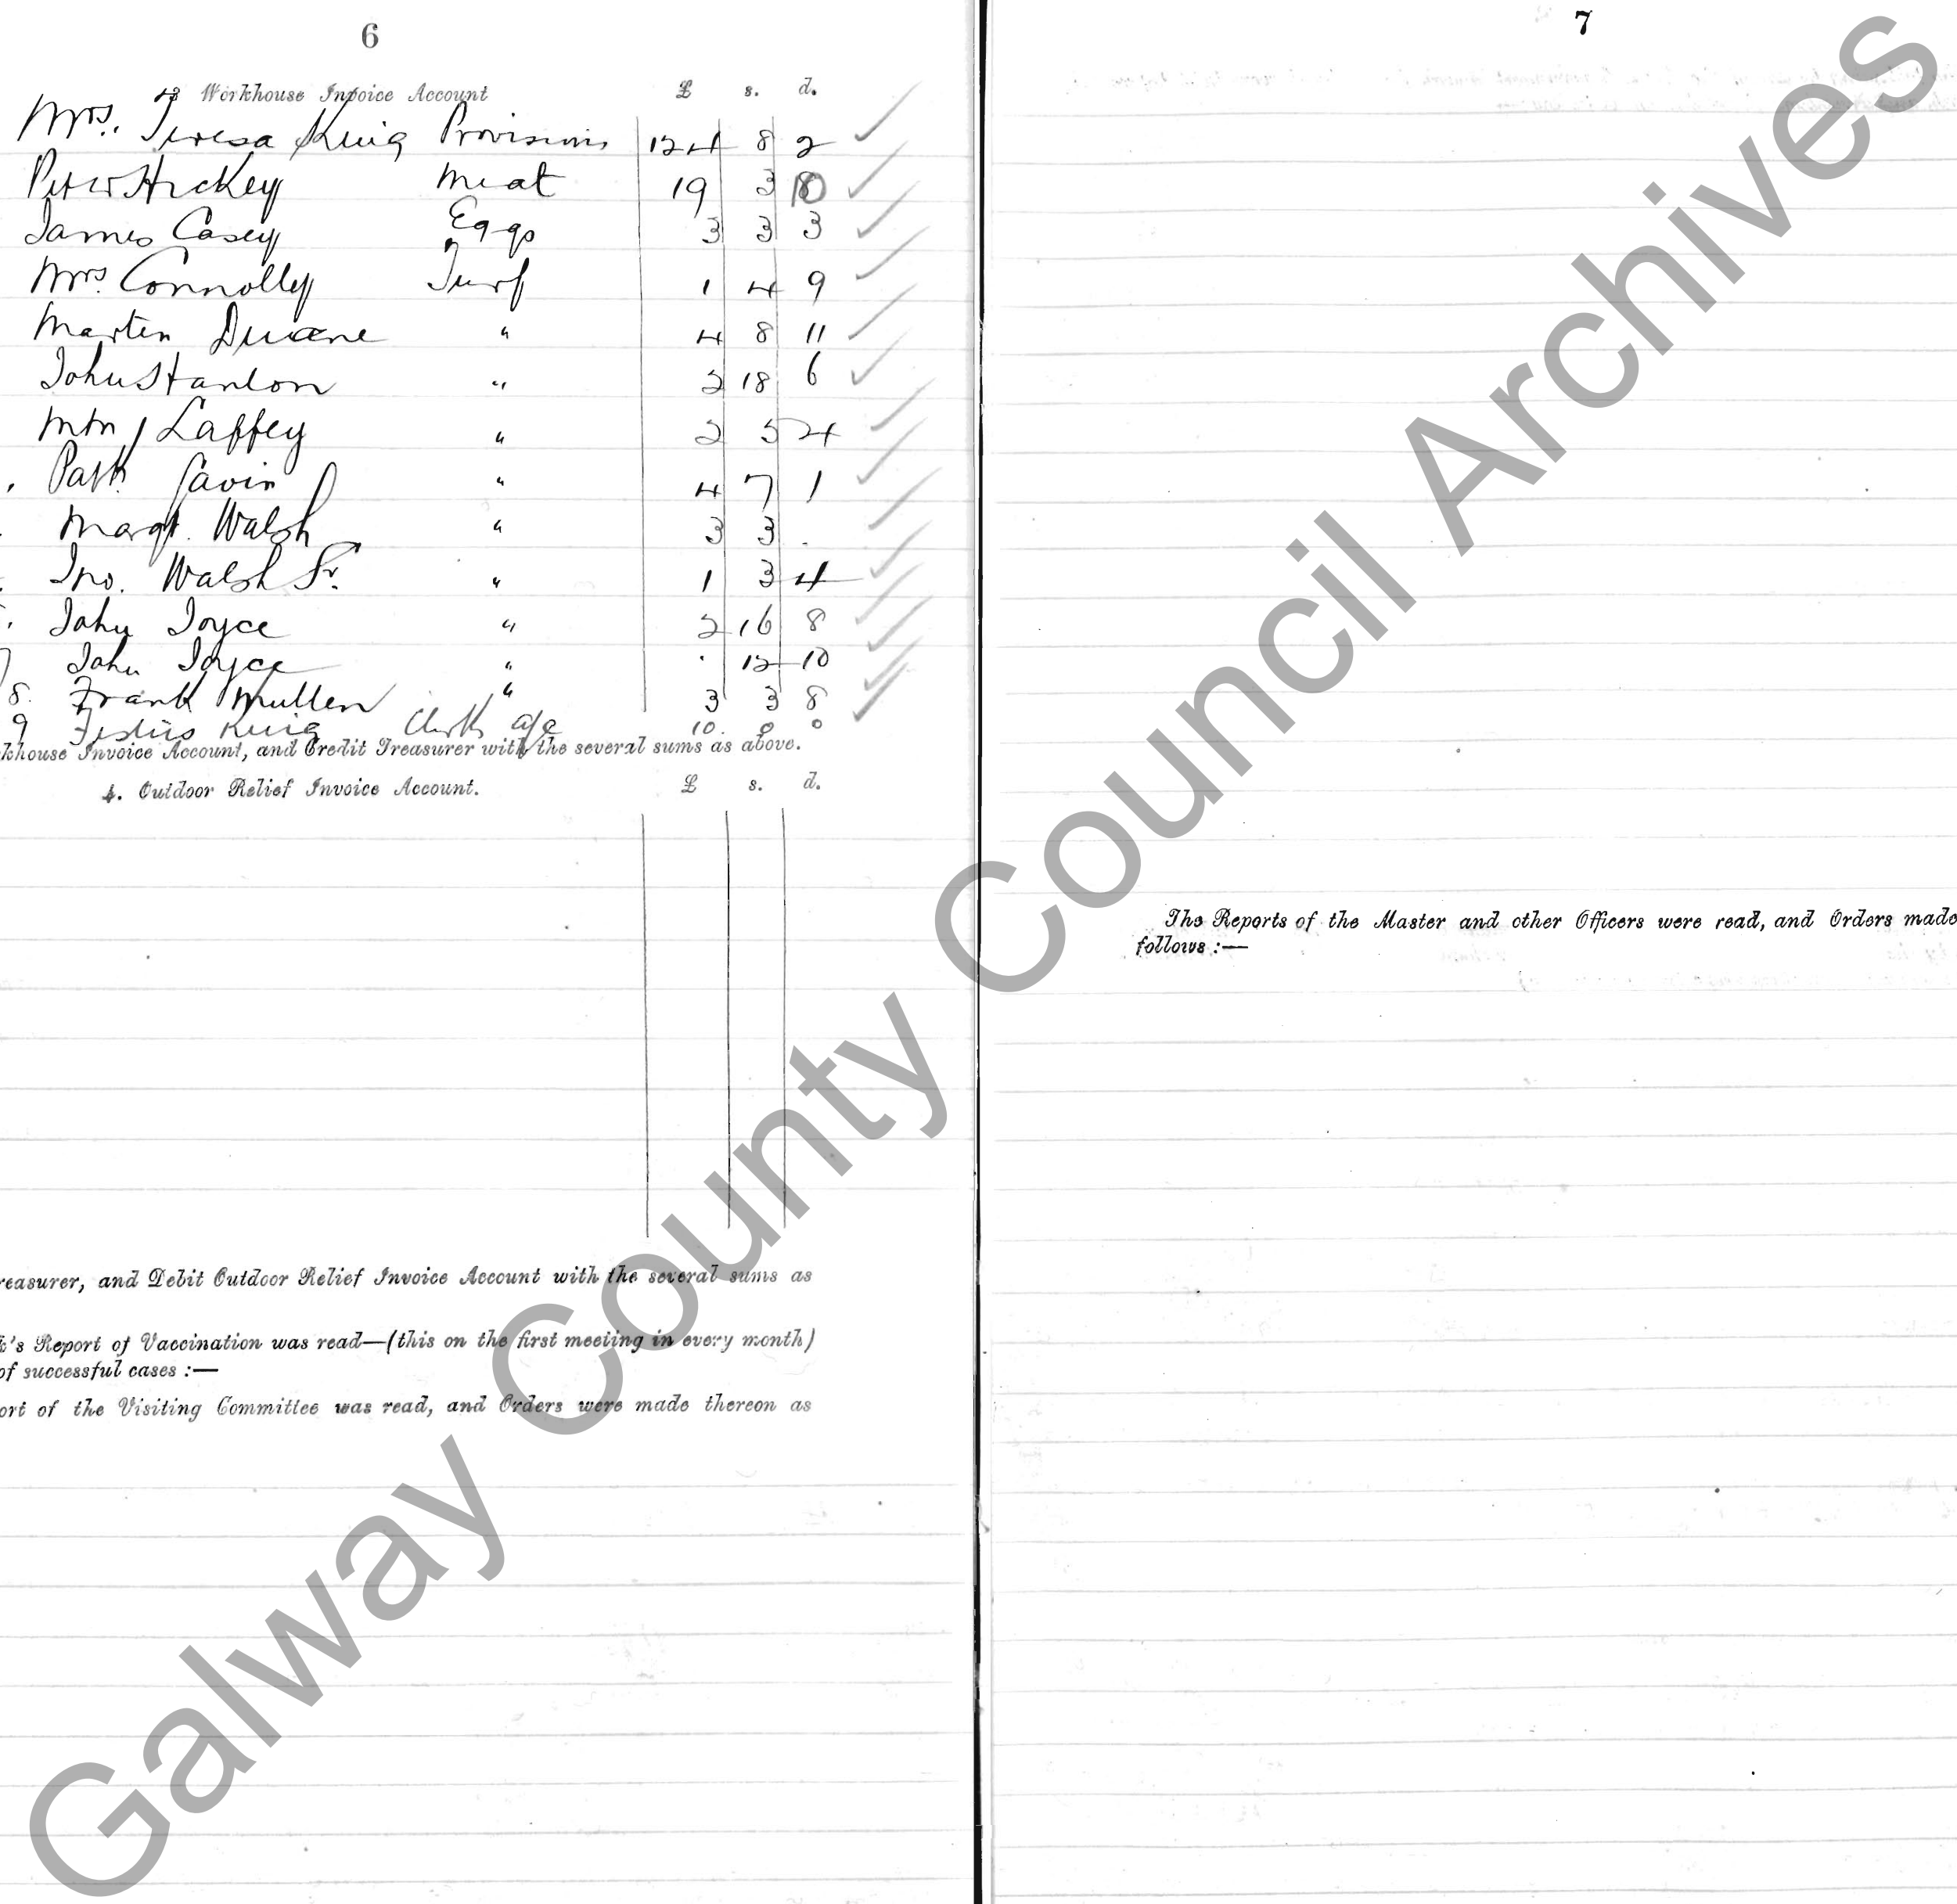 6
Workhouse Invoice Account £ s. d.
Mrs. Teresa King Provisions 124 8 2
Peter Hickey Meat 19 3 10
James Casey Eggs 3 3 3
Mrs. Connolly Turf 1 4 9
Martin Duane " 4 8 11
John Hanlon " 2 18 6
Mtn J Laffey " 2 5 4
Patk. Gavin " 4 7 1
Margt. Walsh " 3 3 .
Jno. Walsh Sr. " 1 3 4
John Joyce " 2 16 8
John Joyce " . 12 10
8. Frank Mullen " 3 3 8
9 Festus King Clerk a/c 10. 0 0
khouse Invoice Account, and Credit Treasurer with the several sums as above.
4. Outdoor Relief Invoice Account. £ s. d.
reasurer, and Debit Outdoor Relief Invoice Account with the several sums as
k's Report of Vaccination was read—(this on the first meeting in every month)
of successful cases :—
ort of the Visiting Committee was read, and Orders were made thereon as
7
The Reports of the Master and other Officers were read, and Orders made
follows :—
Galway County Council Archives